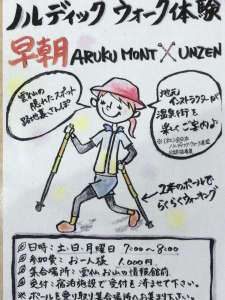 ノルディックウォーク体験
早朝 ARUKU MONT UNZEN
雲仙の
隠れたスポット
路地裏さんぽ
地元
インストラクターが
温泉街を
楽しくご案内♪
2本のポールで
らくらくウォーキング
日時：土・日・月曜日 7:00〜8:00
参加費：お一人様 1,000円
集合場所：雲仙お山の情報館前
受付：宿泊施設で受付を済ませて下さい。
※ポールを受け取り集合場所へお集まり下さい。